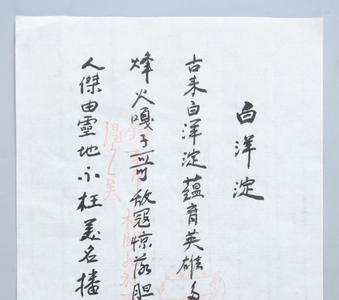 白洋淀
古来白洋淀蘊育英雄多
烽火嘎子哥敌冠惊落胆
人傑由靈地不枉美名播